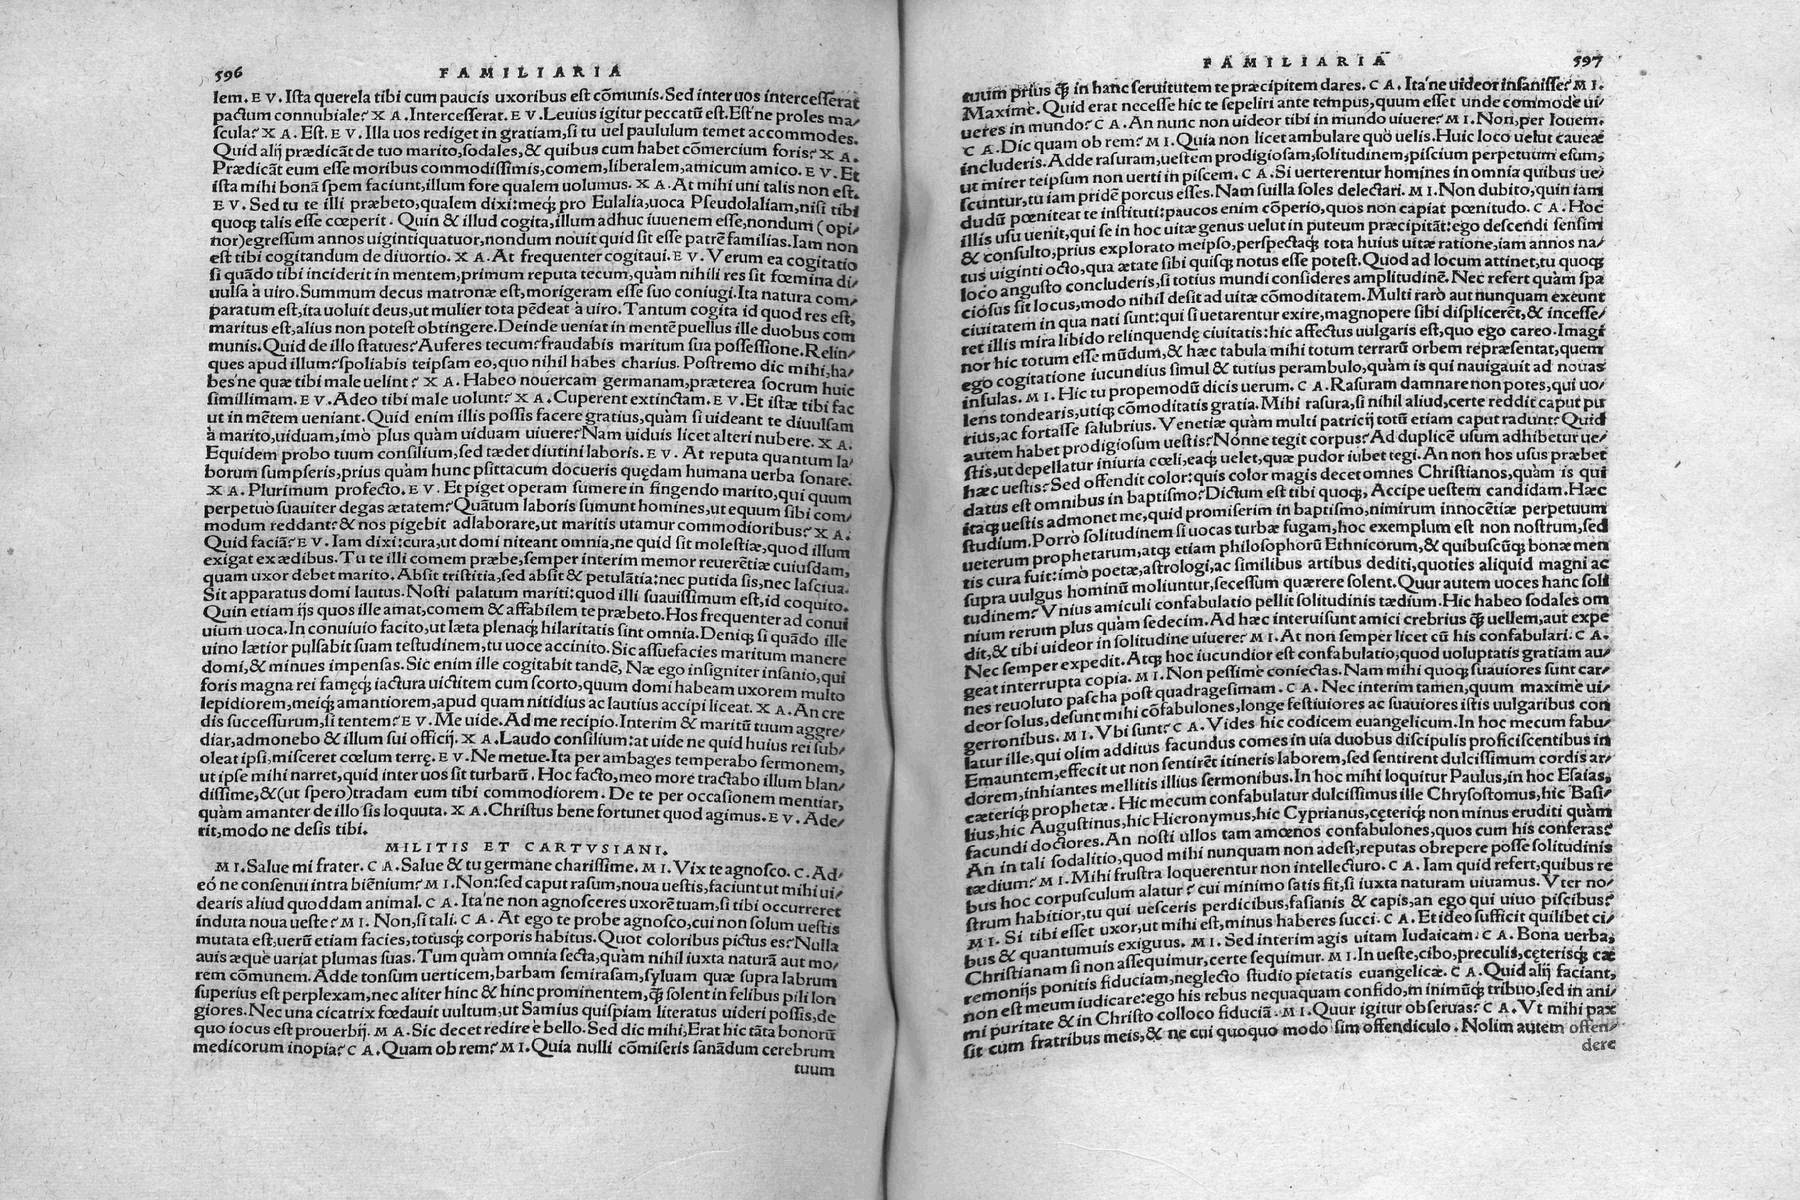 596 FAMILIARIA
lem. EV. Ista querela tibi cum paucis uxoribus est cõmunis. Sed inter uos intercesserat
pactum connubiale? XA. Intercesserat. EV. Leuius igitur peccatũ est. Est'ne proles ma/
scula? XA. Est. EV. Illa uos rediget in gratiam, si tu uel paululum temet accommodes.
Quid alij prædicãt de tuo marito, sodales, & quibus cum habet cõmercium foris? XA.
Prædicãt eum esse moribus commodissimis, comem, liberalem, amicum amico. EV. Et
ista mihi bonã spem faciunt, illum fore qualem uolumus. XA. At mihi uni talis non est.
EV. Sed tu te illi præbeto, qualem dixi: meq; pro Eulalia, uoca Pseudolaliam, nisi tibi
quoq; talis esse cœperit. Quin & illud cogita, illum adhuc iuuenem esse, nondum (opi/
nor) egressum annos uigintiquatuor, nondum nouit quid sit esse patrẽ familias. Iam non
est tibi cogitandum de diuortio. XA. At frequenter cogitaui. EV. Verum ea cogitatio
si quãdo tibi inciderit in mentem, primum reputa tecum, quàm nihili res sit fœmina di/
uulsa à uiro. Summum decus matronæ est, morigeram esse suo coniugi. Ita natura com/
paratum est, ita uoluit deus, ut mulier tota pẽdeat à uiro. Tantum cogita id quod res est,
maritus est, alius non potest obtingere. Deinde ueniat in mentẽ puellus ille duobus com
munis. Quid de illo statues? Auferes tecum? fraudabis maritum sua possessione. Relin/
ques apud illum? spoliabis teipsam eo, quo nihil habes charius. Postremo dic mihi, ha/
bes'ne quæ tibi male uelint? XA. Habeo nouercam germanam, præterea socrum huic
simillimam. EV. Adeo tibi male uolunt? XA. Cuperent extinctam. EV. Et istæ tibi fac
ut in mẽtem ueniant. Quid enim illis possis facere gratius, quàm si uideant te diuulsam
à marito, uiduam, imò plus quàm uiduam uiuere? Nam uiduis licet alteri nubere. XA.
Equidem probo tuum consilium, sed tædet diutini laboris. EV. At reputa quantum la/
borum sumpseris, prius quàm hunc psittacum docueris quędam humana uerba sonare.
XA. Plurimum profecto. EV. Et piget operam sumere in fingendo marito, qui quum
perpetuò suauiter degas ætatem? Quãtum laboris sumunt homines, ut equum sibi com/
modum reddant? & nos pigebit adlaborare, ut maritis utamur commodioribus? XA.
Quid faciã? EV. Iam dixi: cura, ut domi niteant omnia, ne quid sit molestiæ, quod illum
exigat ex ædibus. Tu te illi comem præbe, semper interim memor reuerẽtiæ cuiusdam,
quam uxor debet marito. Absit tristitia, sed absit & petulãtia: nec putida sis, nec lasciua.
Sit apparatus domi lautus. Nosti palatum mariti: quod illi suauissimum est, id coquito.
Quin etiam ijs quos ille amat, comem & affabilem te præbeto. Hos frequenter ad conui
uium uoca. In conuiuio facito, ut læta plenaq; hilaritatis sint omnia. Deniq; si quãdo ille
uino lætior pulsabit suam testudinem, tu uoce accinito. Sic assuefacies maritum manere
domi, & minues impensas. Sic enim ille cogitabit tandẽ, Næ ego insigniter insanio, qui
foris magna rei famęq; iactura uictitem cum scorto, quum domi habeam uxorem multo
lepidiorem, meiq; amantiorem, apud quam nitidius ac lautius accipi liceat. XA. An cre
dis successurum, si tentem? EV. Me uide. Ad me recipio. Interim & maritũ tuum aggre/
diar, admonebo & illum sui officij. XA. Laudo consilium: at uide ne quid huius rei sub/
oleat ipsi, misceret cœlum terrę. EV. Ne metue. Ita per ambages temperabo sermonem,
ut ipse mihi narret, quid inter uos sit turbarũ. Hoc facto, meo more tractabo illum blan/
dissime, & (ut spero) tradam eum tibi commodiorem. De te per occasionem mentiar,
quàm amanter de illo sis loquuta. XA. Christus bene fortunet quod agimus. EV. Ade/
rit, modo ne desis tibi.
MILITIS ET CARTVSIANI.
MI. Salue mi frater. CA. Salue & tu germane charissime. MI. Vix te agnosco. C. Ad/
eó ne consenui intra biẽnium? MI. Non: sed caput rasum, noua uestis, faciunt ut mihi ui/
dearis aliud quoddam animal. CA. Ita'ne non agnosceres uxorẽ tuam, si tibi occurreret
induta noua ueste? MI. Non, si tali. CA. At ego te probe agnosco, cui non solum uestis
mutata est, uerũ etiam facies, totusq; corporis habitus. Quot coloribus pictus es? Nulla
auis æquè uariat plumas suas. Tum quàm omnia secta, quàm nihil iuxta naturã aut mo/
rem cõmunem. Adde tonsum uerticem, barbam semirasam, syluam quæ supra labrum
superius est perplexam, nec aliter hinc & hinc prominentem, q̃ solent in felibus pili lon
giores. Nec una cicatrix fœdauit uultum, ut Samius quispiam literatus uideri possis, de
quo iocus est prouerbij. MA. Sic decet redire è bello. Sed dic mihi, Erat hic tãta bonorũ
medicorum inopia? CA. Quam ob rem? MI. Quia nulli cõmiseris sanãdum cerebrum
tuum
FAMILIARIA 597
tuum prius q̃ in hanc seruitutem te præcipitem dares. CA. Ita'ne uideor insanisse? MI.
Maximè. Quid erat necesse hic te sepeliri ante tempus, quum esset unde commodè ui/
ueres in mundo? CA. An nunc non uideor tibi in mundo uiuere? MI. Non, per Iouem.
CA. Dic quam ob rem? MI. Quia non licet ambulare quò uelis. Huic loco uelut caueæ
includeris. Adde rasuram, uestem prodigiosam, solitudinem, piscium perpetuum esum,
ut mirer teipsum non uerti in piscem. CA. Si uerterentur homines in omnia quibus ue/
scuntur, tu iam pridẽ porcus esses. Nam suilla soles delectari. MI. Non dubito, quin iam
dudũ pœniteat te instituti: paucos enim cõperio, quos non capiat pœnitudo. CA. Hoc
illis usu uenit, qui se in hoc uitæ genus uelut in puteum præcipitãt: ego descendi sensim
& consulto, prius explorato meipso, perspectaq; tota huius uitæ ratione, iam annos na/
tus uiginti octo, qua ætate sibi quisq; notus esse potest. Quod ad locum attinet, tu quoq;
loco angusto concluderis, si totius mundi consideres amplitudinẽ. Nec refert quàm spa
ciosus sit locus, modo nihil desit ad uitæ cõmoditatem. Multi rarò aut nunquam exeunt
ciuitatem in qua nati sunt: qui si uetarentur exire, magnopere sibi displicerẽt, & incesse/
ret illis mira libido relinquendę ciuitatis: hic affectus uulgaris est, quo ego careo. Imagi
nor hic totum esse mũdum, & hæc tabula mihi totum terrarũ orbem repræsentat, quem
ego cogitatione iucundius simul & tutius perambulo, quàm is qui nauigauit ad nouas
insulas. MI. Hic tu propemodũ dicis uerum. CA. Rasuram damnare non potes, qui uo/
lens tondearis, utiq; cõmoditatis gratia. Mihi rasura, si nihil aliud, certe reddit caput pu
rius, ac fortasse salubrius. Venetiæ quàm multi patricij totũ etiam caput radunt? Quid
autem habet prodigiosum uestis? Nónne tegit corpus? Ad duplicẽ usum adhibetur ue/
stis, ut depellatur iniuria cœli, eaq; uelet, quæ pudor iubet tegi. An non hos usus præbet
hæc uestis? Sed offendit color: quis color magis decet omnes Christianos, quàm is qui
datus est omnibus in baptismo? Dictum est tibi quoq;, Accipe uestem candidam. Hæc
itaq; uestis admonet me, quid promiserim in baptismo, nimirum innocẽtiæ perpetuum
studium. Porrò solitudinem si uocas turbæ fugam, hoc exemplum est non nostrum, sed
ueterum prophetarum, atq; etiam philosophorũ Ethnicorum, & quibuscũq; bonæ men
tis cura fuit: imò poetæ, astrologi, ac similibus artibus dediti, quoties aliquid magni ac
supra uulgus hominũ moliuntur, secessum quærere solent. Quur autem uoces hanc soli
tudinem? Vnius amiculi confabulatio pellit solitudinis tædium. Hic habeo sodales om
nium rerum plus quàm sedecim. Ad hæc interuisunt amici crebrius q̃ uellem, aut expe
dit, & tibi uideor in solitudine uiuere? MI. At non semper licet cũ his confabulari. CA.
Nec semper expedit. Atq; hoc iucundior est confabulatio, quod uoluptatis gratiam au/
geat interrupta copia. MI. Non pessimè coniectas. Nam mihi quoq; suauiores sunt car/
nes reuoluto pascha post quadragesimam. CA. Nec interim tamen, quum maximè ui/
deor solus, desunt mihi cõfabulones, longe festiuiores ac suauiores istis uulgaribus con
gerronibus. MI. Vbi sunt? CA. Vides hic codicem euangelicum. In hoc mecum fabu/
latur ille, qui olim additus facundus comes in uia duobus discipulis proficiscentibus in
Emauntem, effecit ut non sentirẽt itineris laborem, sed sentirent dulcissimum cordis ar/
dorem, inhiantes mellitis illius sermonibus. In hoc mihi loquitur Paulus, in hoc Esaias,
cæteriq; prophetæ. Hic mecum confabulatur dulcissimus ille Chrysostomus, hic Basi/
lius, hic Augustinus, hic Hieronymus, hic Cyprianus, cęteriq; non minus eruditi quàm
facundi doctores. An nosti ullos tam amœnos confabulones, quos cum his conferas?
An in tali sodalitio, quod mihi nunquam non adest, reputas obrepere posse solitudinis
tædium? MI. Mihi frustra loquerentur non intellecturo. CA. Iam quid refert, quibus re
bus hoc corpusculum alatur? cui minimo satis fit, si iuxta naturam uiuamus. Vter no/
strum habitior, tu qui uesceris perdicibus, fasianis & capis, an ego qui uiuo piscibus?
MI. Si tibi esset uxor, ut mihi est, minus haberes succi. CA. Et ideo sufficit quilibet ci/
bus & quantumuis exiguus. MI. Sed interim agis uitam Iudaicam. CA. Bona uerba,
Christianam si non assequimur, certe sequimur. MI. In ueste, cibo, preculis, cęterisq; cæ
remonijs ponitis fiduciam, neglecto studio pietatis euangelicæ. CA. Quid alij faciant,
non est meum iudicare: ego his rebus nequaquam confido, m inimũq; tribuo, sed in ani/
mi puritate & in Christo colloco fiduciã. MI. Quur igitur obseruas? CA. Vt mihi pax
sit cum fratribus meis, & ne cui quoquo modo sim offendiculo. Nolim autem offen/
dere